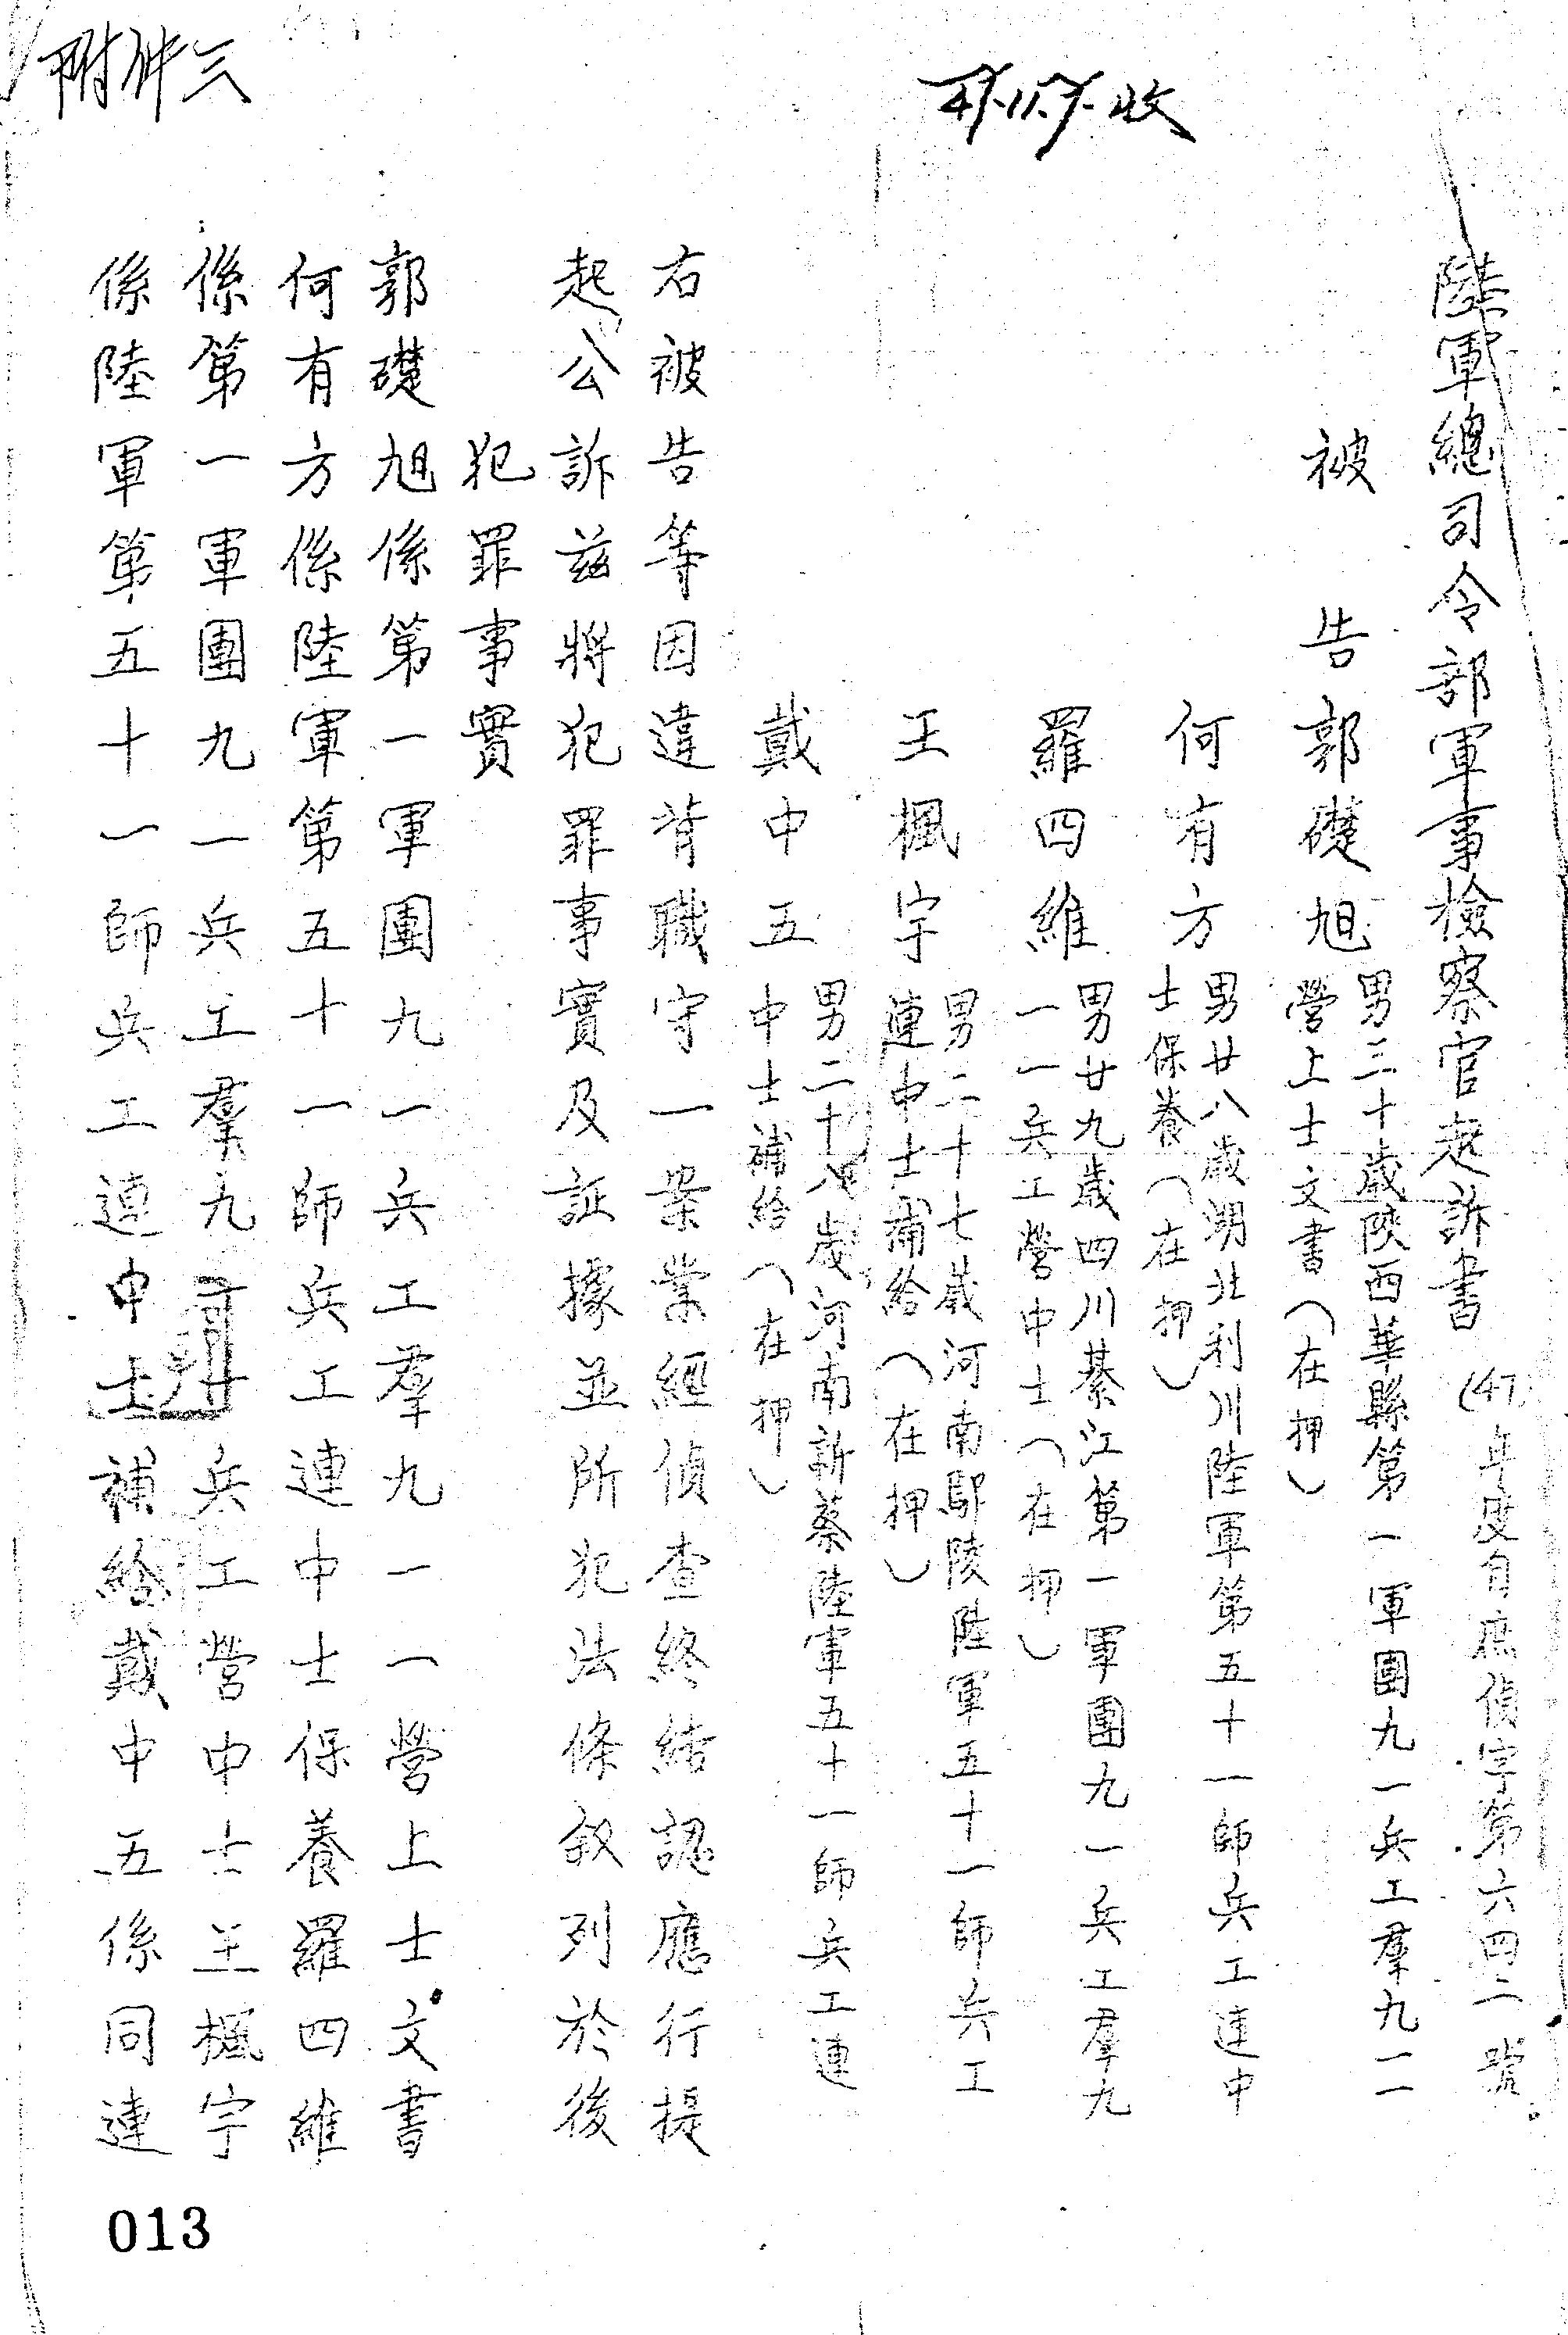 附件三
47.11.7.收
陸軍總司令部軍事檢察官起訴書(47年度自庶偵字第六四二號
被告郭礎旭男三十歲陝西華縣第一軍團九一兵工羣九一一
營上士文書(在押)
何有方男廿八歲湖北利川陸軍第五十一師兵工連中
士保養(在押)
羅四維男廿九歲四川綦江第一軍團九一兵工羣九
一一兵工營中士(在押)
王楓宇男二十七歲河南鄢陵陸軍五十一師兵工
連中士補給(在押)
戴中五男二十八歲河南新蔡陸軍五十一師兵工連
中士補給(在押)
右被告等因違背職守一案業經偵查終結認應行提
起公訴茲將犯罪事實及証據並所犯法條叙列於後
犯罪事實
郭礎旭係第一軍團九一兵工羣九一一營上士文書
何有方係陸軍第五十一師兵工連中士保養羅四維
係第一軍團九一兵工羣九一一兵工營中士王楓宇
係陸軍第五十一師兵工連中士補給戴中五係同連
013